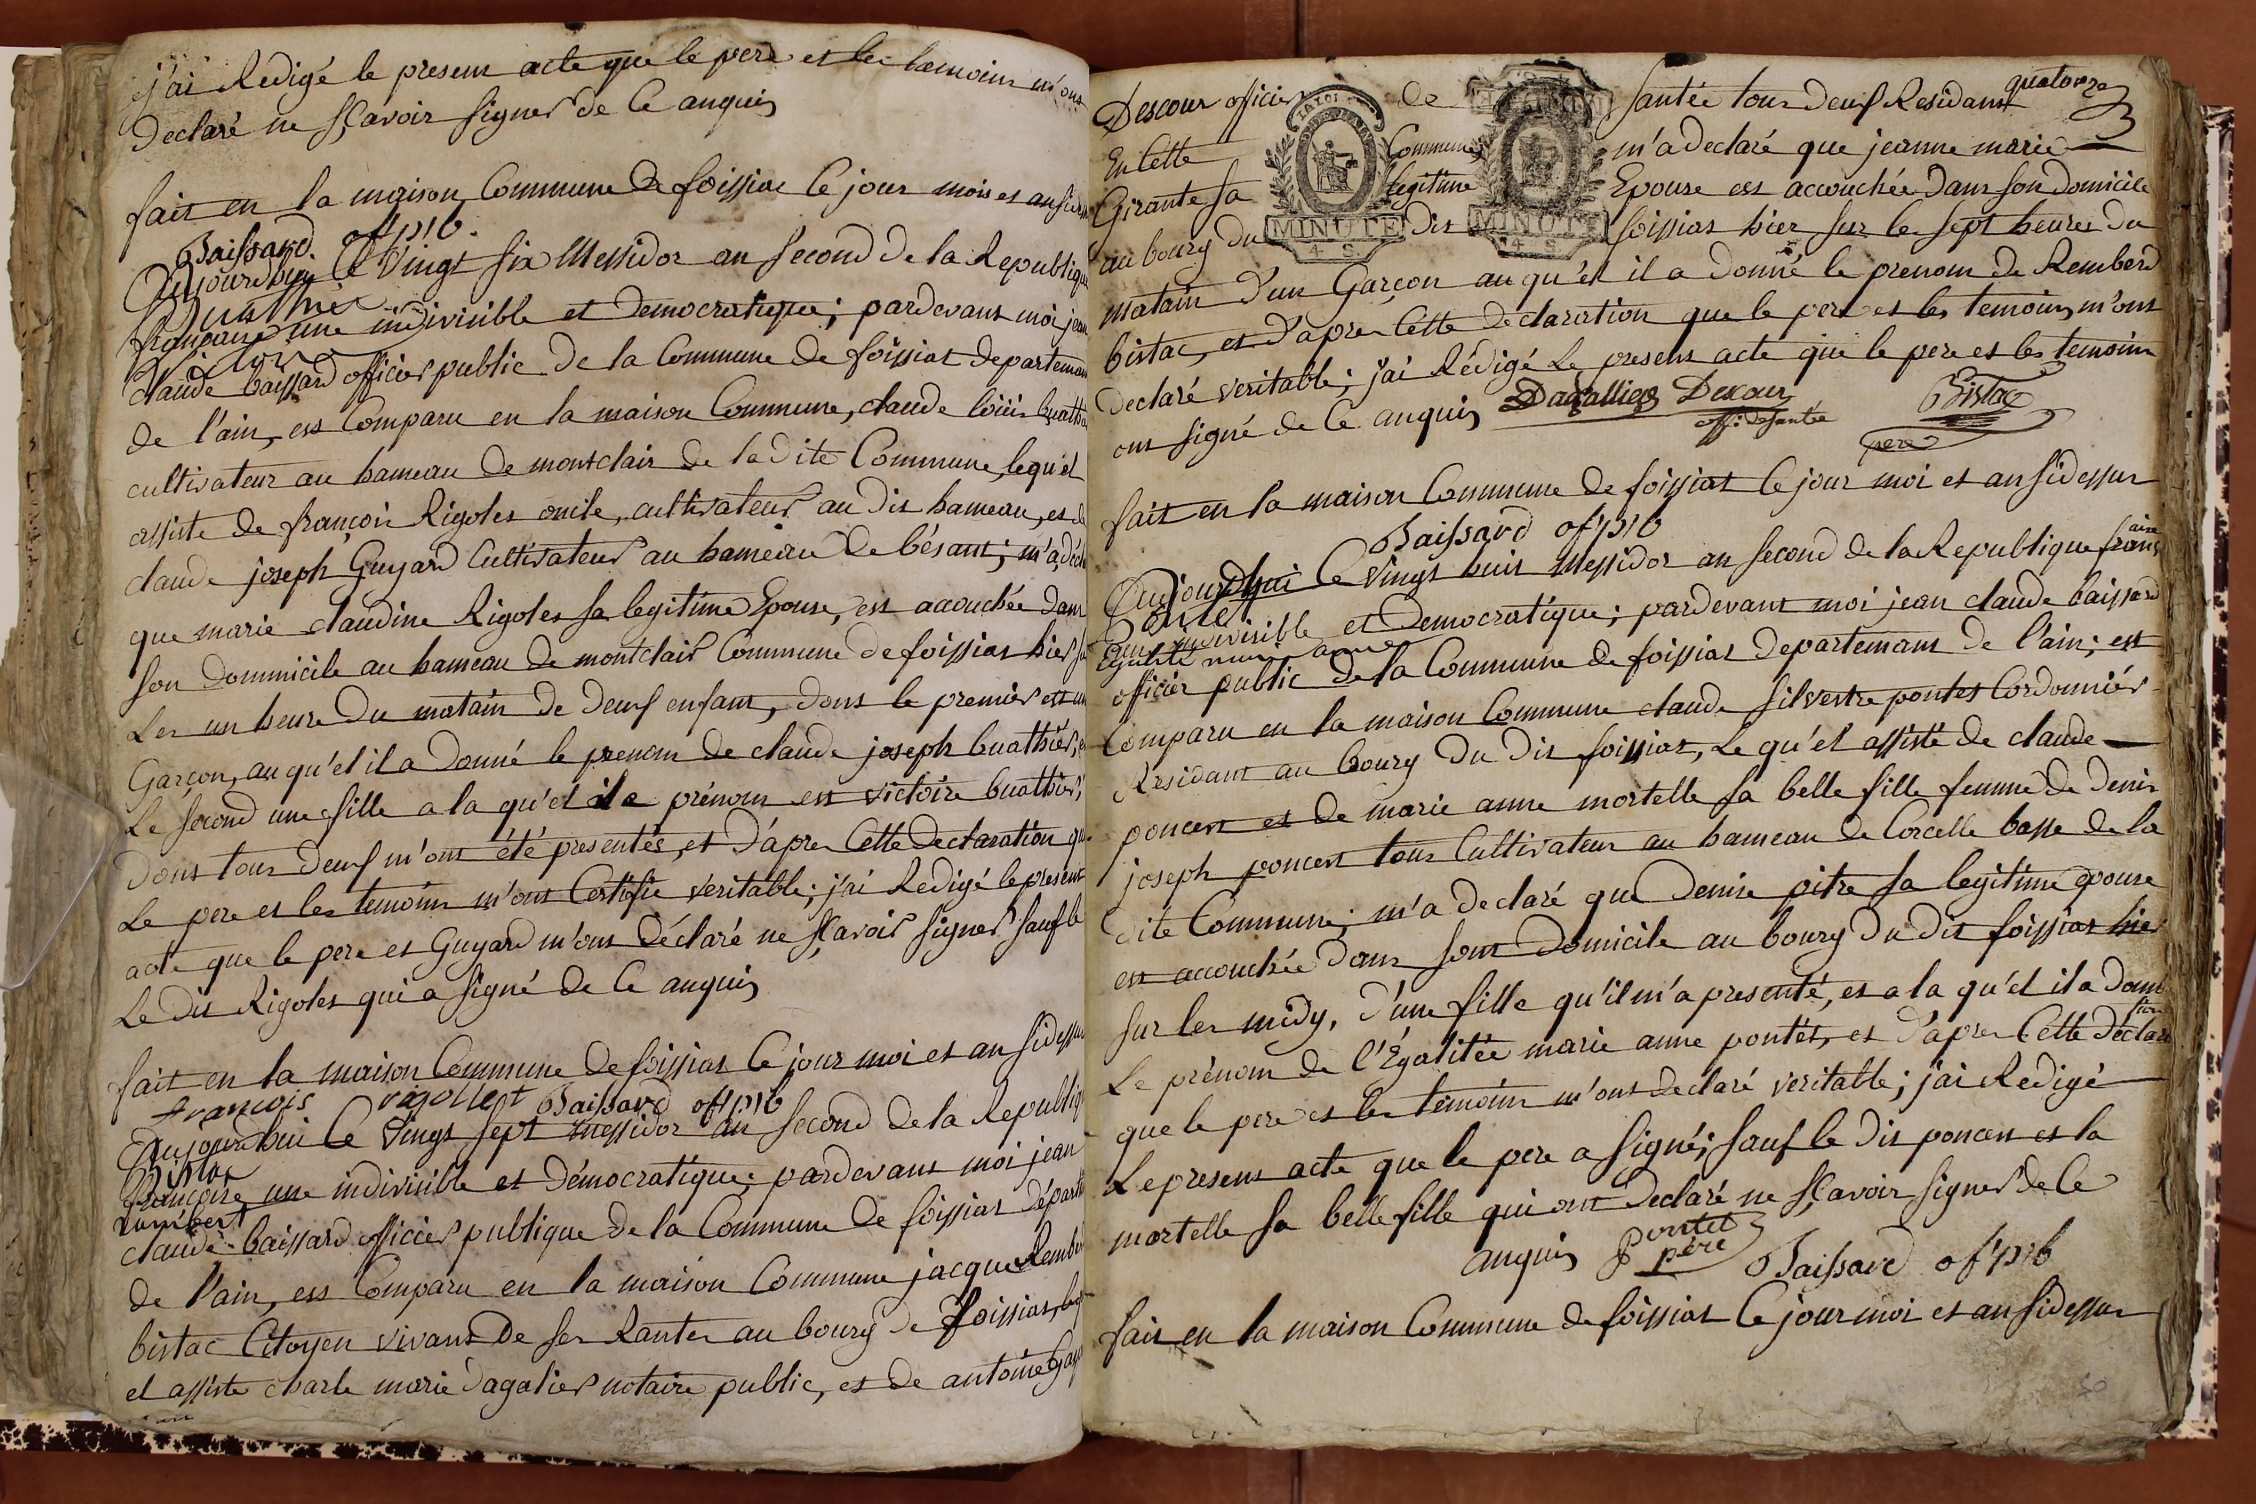 j'ai Redigé le presens acte que le pere et les temoins m'ons
declaré ne sçavoir signer de ce anquis
fait en la maison Commune de foissiac ce jour mois et an
Baissard of p^b.
Aujourdhuy le vingt six Messidor an second de la Republique
Buathié
française une indivisible et democratique; pardevans moi jean
Victoire
claude baissard officier public de la Commune de foissiat departeman
de l'ain, ess Comparu en la maison Commune, claude buathié
cultivateur au hameau de montclair de la dite Commune, lequ'el
assiste de françois Rigoles oncle, cultivateur au dis hameau, es de
claude joseph Guyard Cultivateur au hameau de bésant; m'a décl
que marie claudine Rigoles sa legitime Epouse, ess acouchée dans
son dommicile au hameau de montclair Commune de foissias hier
Les un heure du matain de deus enfans, dons le premier ess un
Garçon, au qu'el il a donné le prenom de claude joseph buathier, e
Le second une fille a la qu'el il a prénom ess victoire buathier,
dons tous deus m'ons été presentés, et d'apres Cette declaration que
Le pere es les temoins m'ons Certifié veritable; j'ai Redigé le presens
acte que le pere es Guyard m'ons déclaré ne sçavoir signer sauf le
Le dis Rigoles qui a signé de Ce anquis
fait en la maison Commune de foissias Ce jour moi es an sidessus
françois rigollet Baissard of p^b
Aujourdhui le vings sept messidor an second de la Republiq
Bistac
françoise une indivisible es démocratique; pardevans moi jean
rambert
claude baissard officier publique de la Commune de foissias départ
de l'ain, ess Comparu en la maison Commune jacque Rember
bistac Citoyen vivans de ses Rantes au bourg de foissias, leq
el assiste charle marie dagalier notaire public, es de antoine
quatorze
Descour officier de santée tous deus Residans
En Cette Commune m'a declaré que jeanne marie
Girante sa legitime Epouse ess accouchée dans son domicile
au bourg du dis foissias hier sur les sept heures du
LA LOI
MINUTE
4 S
MINUTE
4 S
matain d'un Garçon au qu'el il a donné le prenom de Remberd
bistac, es d'apres Cette declaration que le pere es les temoins m'ons
declaré veritable; j'ai Rédigé Le presens acte que le pere es les temoins
ons signé de Ce anquis Dagallier Descour Bistac
off. de santée pere
fait en la maison Commune de foissias Ce jour moi es an sidessus
Baissard of p^b
Aujourdhui le vings huis Messidor an second de la Republique françaisse
Pontet
une indivisible et Democratique; pardevans moi jean claude baissard
Egalité marie anne
officier public de la Commune de foissias departemans de l'ain; est
Comparu en la maison Commune claude silvestre pontes Cordonniér
Residans au bourg du dis foissias, Le qu'el assisté de claude
poncess es de marie anne mortelle sa belle fille femme de denis
joseph poncess tous Cultivateur au hameau de Corcelle basse de la
dite Commune; m'a declaré que denise pitre sa legitime epouse
ess accouchée dans sons domicile au bourg du dis foissias hier
sur les midy, d'une fille qu'il m'a presenté, es a la qu'el il a donné
Le prénom de l'Égalitée marie anne pontés, es d'apres Cette déclaration
que le pere es les temoins m'ons declaré veritable; j'ai Redigé
Le presens acte que le pere a signé; sauf le dis poncess es la
mortelle sa belle fille qui ons declaré ne sçavoir signer de Ce
anquis Pontet père Baissard of p^b
fais en la maison Commune de foissias Ce jour moi es an sidessus